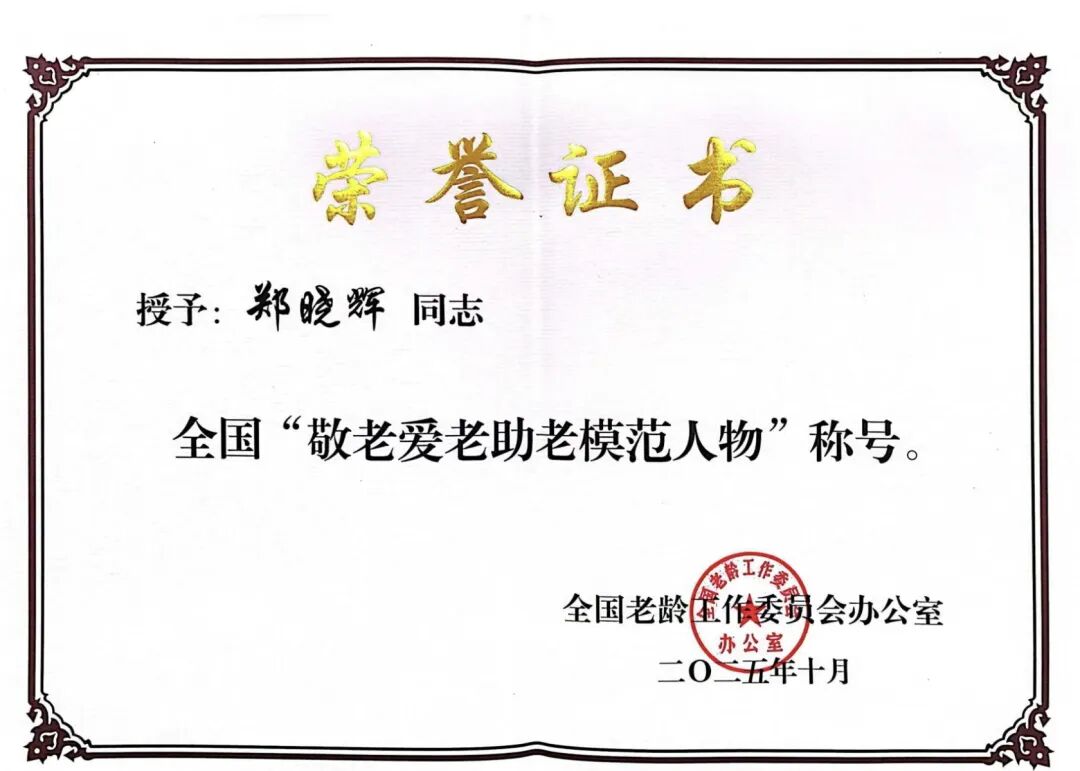 荣誉证书
授予：郑晓辉 同志
全国“敬老爱老助老模范人物”称号。
全国老龄工作委员会办公室
二〇二五年十月
全国老龄工作委员会
办公室